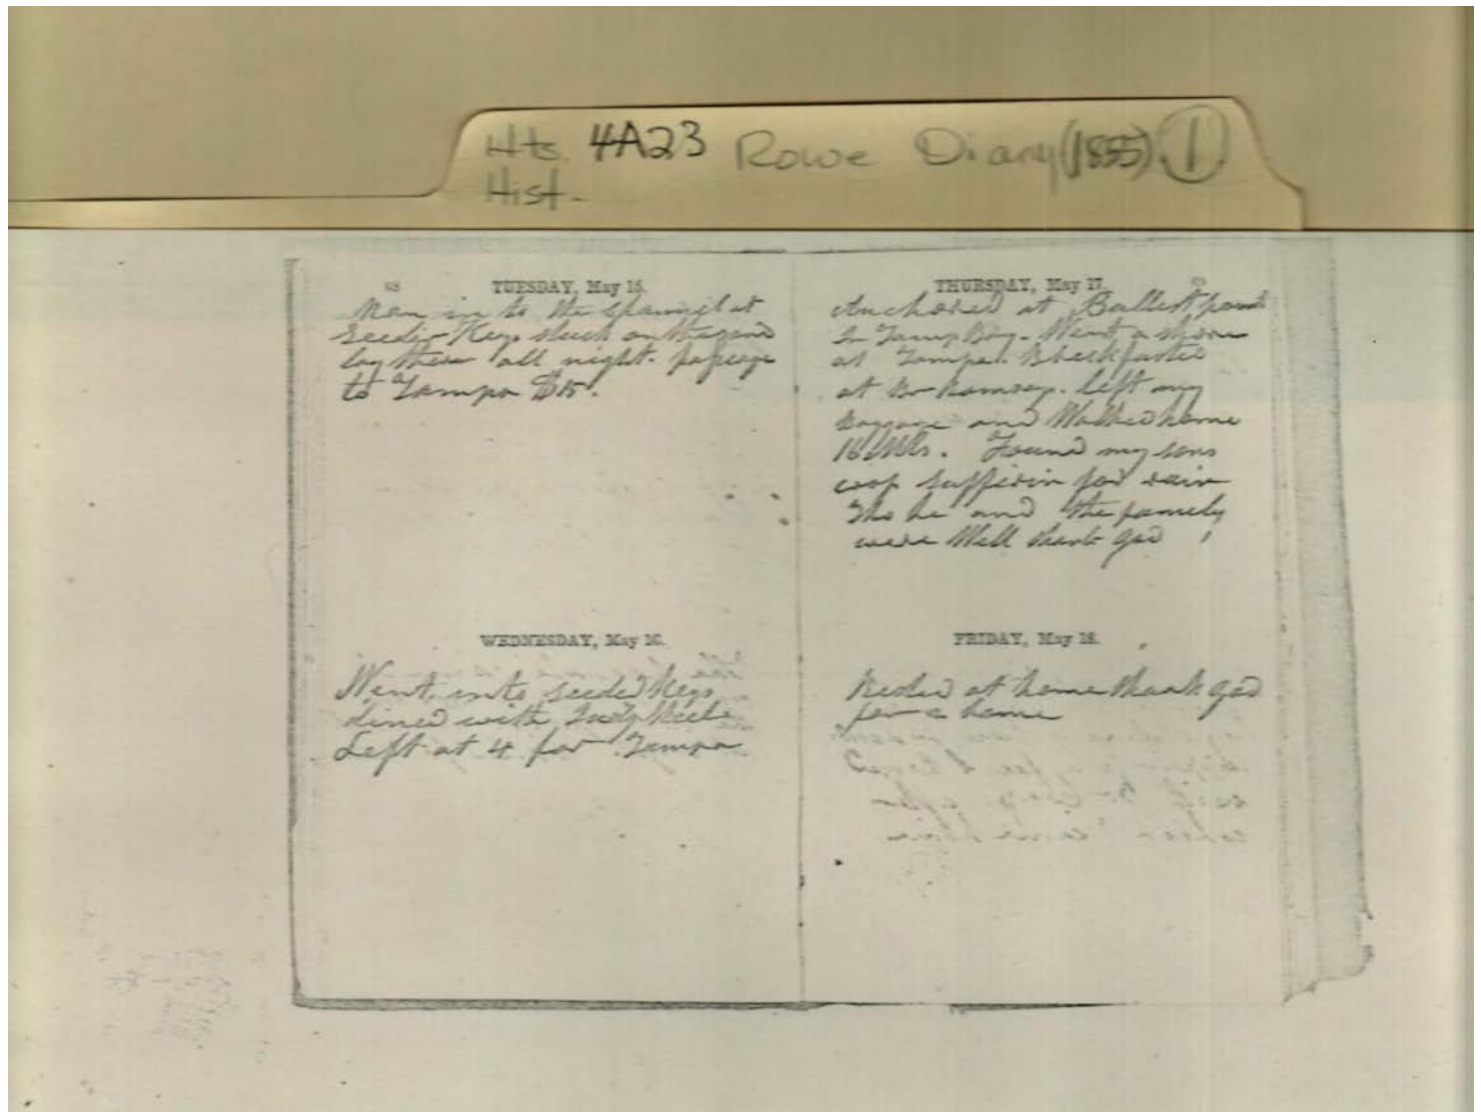 Hts. 4A23 Rowe Diary (1855) 1
Hist.
68
TUESDAY, May 15.
Ran in to the Channel at
Seeder Keys stuck on the
lay there all night. passage
to Tampa $15.
WEDNESDAY, May 16.
Went into seeder Keys
dined with
Left at 4 for Tampa
THURSDAY, May 17.
Anchored at Ballest point
In Tamp Bay. Went a shore
at Tampa. Breckfasted
at Ramsey. left my
Baggage and Walked home
16 Mls. Found my sons
crop sufferin for rain
Tho he and the family
were Well thank god
FRIDAY, May 18.
Rested at home thank god
for a home